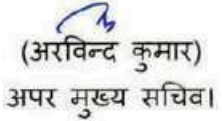 (अरविन्द कुमार)
अपर मुख्य सचिव।